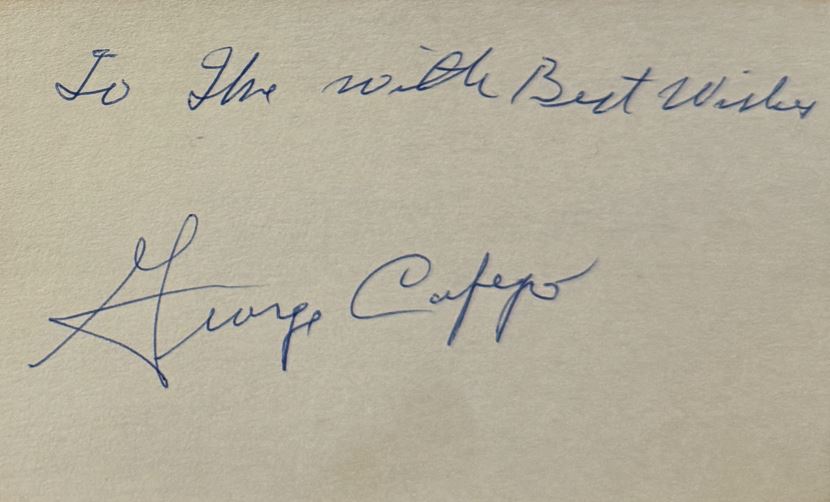 To with Best Wishes
George Cafego